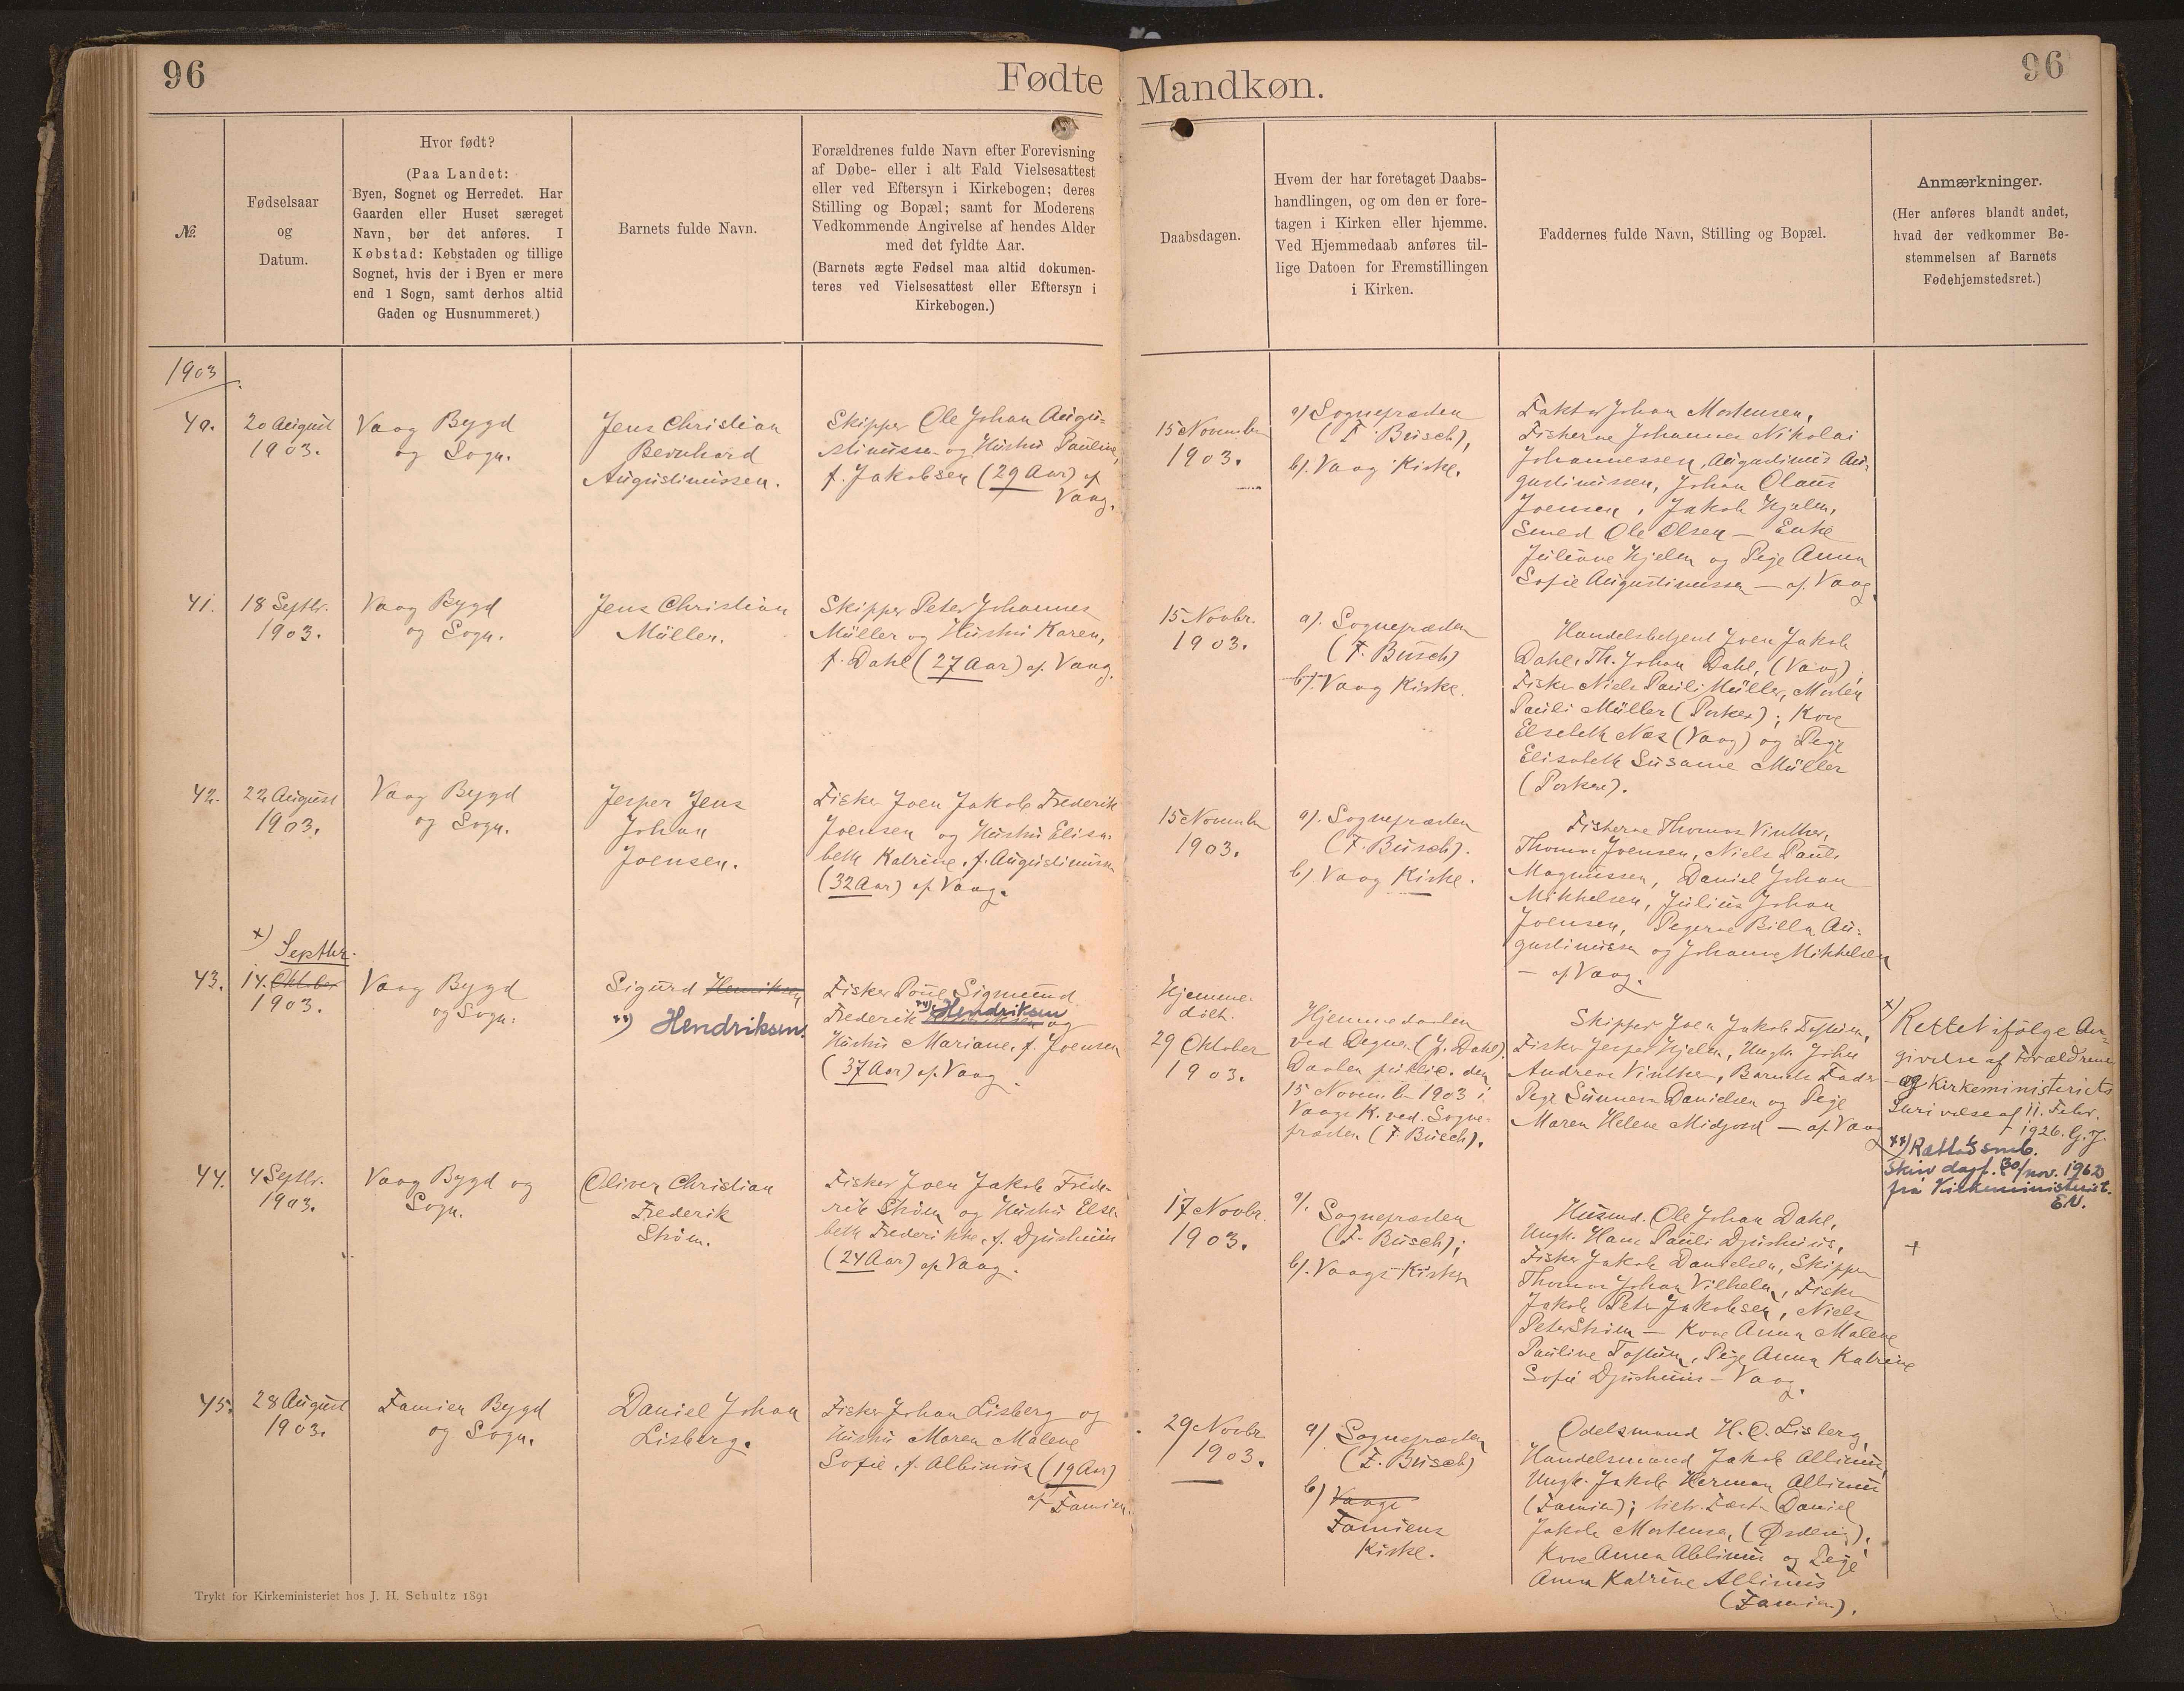 96
Fødte
Mandkøn.
96
№
Fødselsaar
og
Datum.
Hvor født?
(Paa Landet:
Byen, Sognet og Herredet. Har
Gaarden eller Huset særeget
Navn, bør det anføres. I
Købstad: Købstaden og tillige
Sognet, hvis der i Byen er mere
end 1 Sogn, samt derhos altid
Gaden og Husnummeret.)
Barnets fulde Navn.
Forældrenes fulde Navn efter Forevisning
af Døbe- eller i alt Fald Vielsesattest
eller ved Eftersyn i Kirkebogen; deres
Stilling og Bopæl; samt for Moderens
Vedkommende Angivelse af hendes Alder
med det fyldte Aar.
(Barnets ægte Fødsel maa altid dokumen-
teres ved Vielsesattest eller Eftersyn i
Kirkebogen.)
Daabsdagen.
Hvem der har foretaget Daabs-
handlingen, og om den er fore-
tagen i Kirken eller hjemme.
Ved Hjemmedaab anføres til-
lige Datoen for Fremstillingen
i Kirken.
Faddernes fulde Navn, Stilling og Bopæl.
Anmærkninger.
(Her anføres blandt andet,
hvad der vedkommer Be-
stemmelsen af Barnets
Fødehjemstedsret.)
1903
40.
20 August
1903.
Vaag Bygd
og Sogn.
Jens Christian
Bernhard
Augustinussen.
Skipper Ole Johan Augu-
stinussen og Hustru Pauline,
f. Jakobsen (29 Aar) af
Vaag.
15 November
1903.
a) Sognepræsten
(F. Busch),
b). Vaag Kirke.
Faktor Johan Mortensen,
Fiskerne Johannes Nikolai
Johannessen, Augustinus Au-
gustinussen, Johan Olaus
Joensen, Jakob Hjelm,
Smed Ole Olsen — Enke
Juliane Hjelm og Pige Anna
Sofie Augustinussen — af Vaag.
41.
18 Septbr.
1903.
Vaag Bygd
og Sogn.
Jens Christian
Müller.
Skipper Peter Johannes
Müller og Hustru Karen,
f. Dahl (27 Aar) af Vaag.
15 Novbr.
1903.
a). Sognepræsten
(F. Busch)
b). Vaag Kirke.
Handelsbetjent Joen Jakob
Dahl, Th. Johan Dahl, (Vaag);
Fisker Niels Pauli Müller, Morten
Pauli Müller (Porkere); Kone
Elsebeth Næs (Vaag) og Pige
Elisabeth Susanne Müller
(Porkere).
42.
22 August
1903.
Vaag Bygd
og Sogn.
Jesper Jens
Johan
Joensen.
Fisker Joen Jakob Frederik
Joensen og Hustru Elisa-
beth Katrine, f. Augustinussen
(32 Aar) af Vaag.
15 November
1903.
a). Sognepræsten
(F. Busch).
b) Vaag Kirke.
Fiskerne Thomas Vinther,
Thomas Joensen, Niels Pauli
Magnussen, Daniel Johan
Mikkelsen, Julius Johan
Joensen, Pigerne Billa Au-
gustinussen og Johanne Mikkelsen
— af Vaag.
43.
x) Septbr.
14. Oktober
1903.
Vaag Bygd
og Sogn.
Sigurd Henriksen
xx) Hendriksen.
Fisker Poul Sigmund
xx) Hendriksen
Frederik Henriksen og
Hustru Mariane, f. Joensen
(37 Aar) af Vaag.
Hjemme-
døbt.
29 Oktober
1903.
Hjemmedøbt
ved Degnen (J. Dahl).
Daaben public. den
15 Novemb. 1903 i
Vaags K. ved Sogne-
præsten (F. Busch).
Skipper Joen Jakob Toftum,
Fisker Jesper Hjelm, Ungk. John
Andreas Vinther, Barnets Fader
Pige Sunneva Danielsen og Pige
Maren Helene Midjord — af Vaag
x) Rettet ifølge An-
givelse af Forældrene
og Kirkeministeriets
Skrivelse af 11. Febr.
1926. G. J.
xx) Rettet smb.
skriv dagf. 30/nov. 1962
frá Kirkeministeriet.
EW.
44.
4 Septbr.
1903.
Vaag Bygd og
Sogn.
Oliver Christian
Frederik
Strøm.
Fisker Joen Jakob Frede-
rik Strøm og Hustru Else-
beth Frederikke, f. Djurhuus
(24 Aar) af Vaag.
17 Novbr.
1903.
a).
Sognepræsten
(F. Busch);
b). Vaags Kirke
Husmd. Ole Johan Dahl,
Ungk. Hans Pauli Djurhuus,
Fisker Jakob Danielsen, Skipper
Thomas Johan Vilhelm, Fisker
Jakob Peter Jakobsen, Niels
Peter Strøm — Kone Anna Malene
Pauline Toftum, Pige Anna Katrine
Sofie Djurhuus — Vaag.
+
45.
28 August
1903.
Famien Bygd
og Sogn.
Daniel Johan
Lisberg.
Fisker Johan Lisberg og
Hustru Maren Malene
Sofie, f. Albinus (19 Aar)
af Famien.
29 Novbr
1903.
a) Sognepræsten
(F. Busch)
b) Vaags
Famiens
Kirke.
Odelsmand H. O. Lisberg,
Handelsmand Jakob Albinus,
Ungk. Jakob Herman Albinus
(Famien); Daniel
Jakob Mortensen (Ørdevig),
Kone Anna Albinus og Pige
Anna Katrine Albinus
(Famien).
Trykt for Kirkeministeriet hos J. H. Schultz 1891